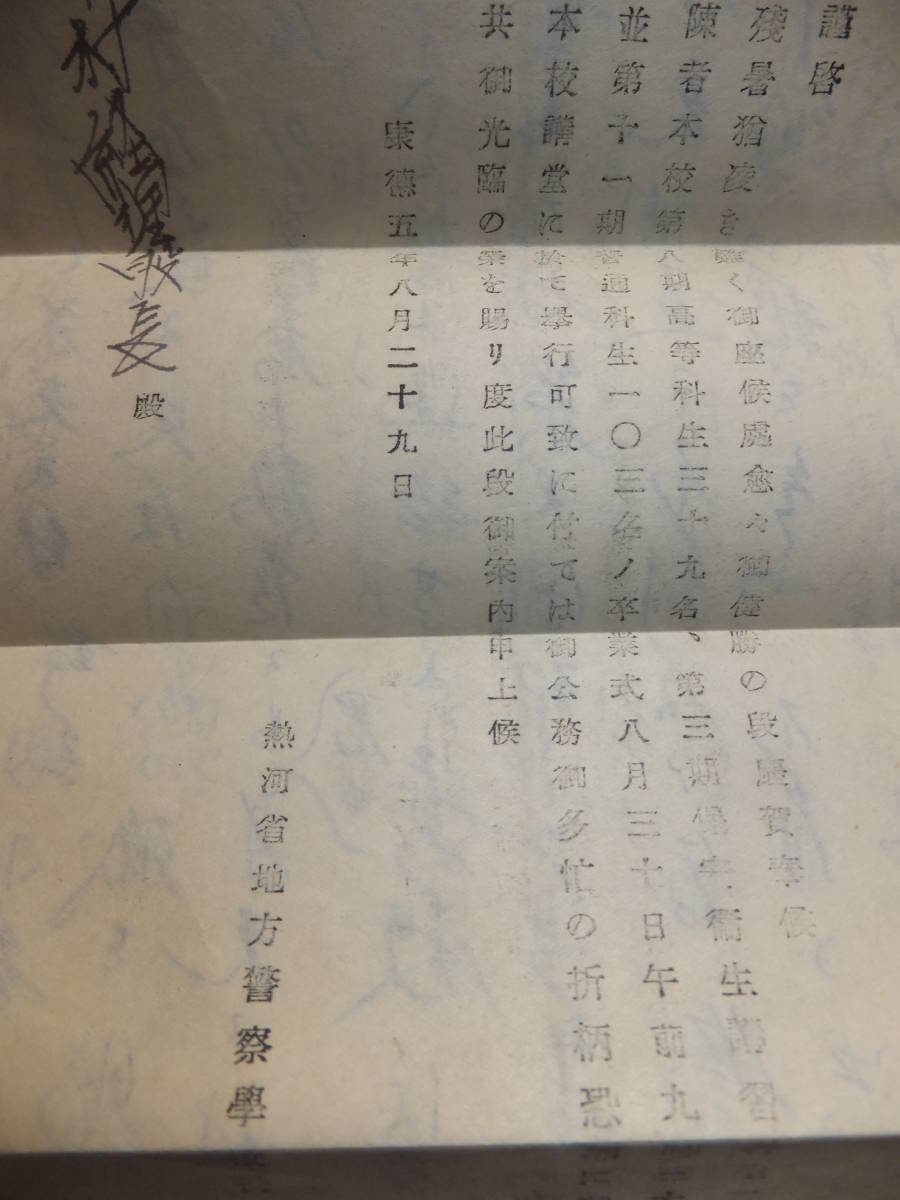 謹啓
殘暑猶凌き難く御座候處愈々御健勝の段慶賀奉候
陳者本校第八期高等科生三十九名、第三期保安衞生講習
並第十一期普通科生一〇三名ノ卒業式八月三十日午前九
本校講堂に於て擧行可致に付ては御公務御多忙の折柄恐
共御光臨の榮を賜リ度此段御案内申上候
康德五年八月二十九日
熱河省地方警察學
長
殿